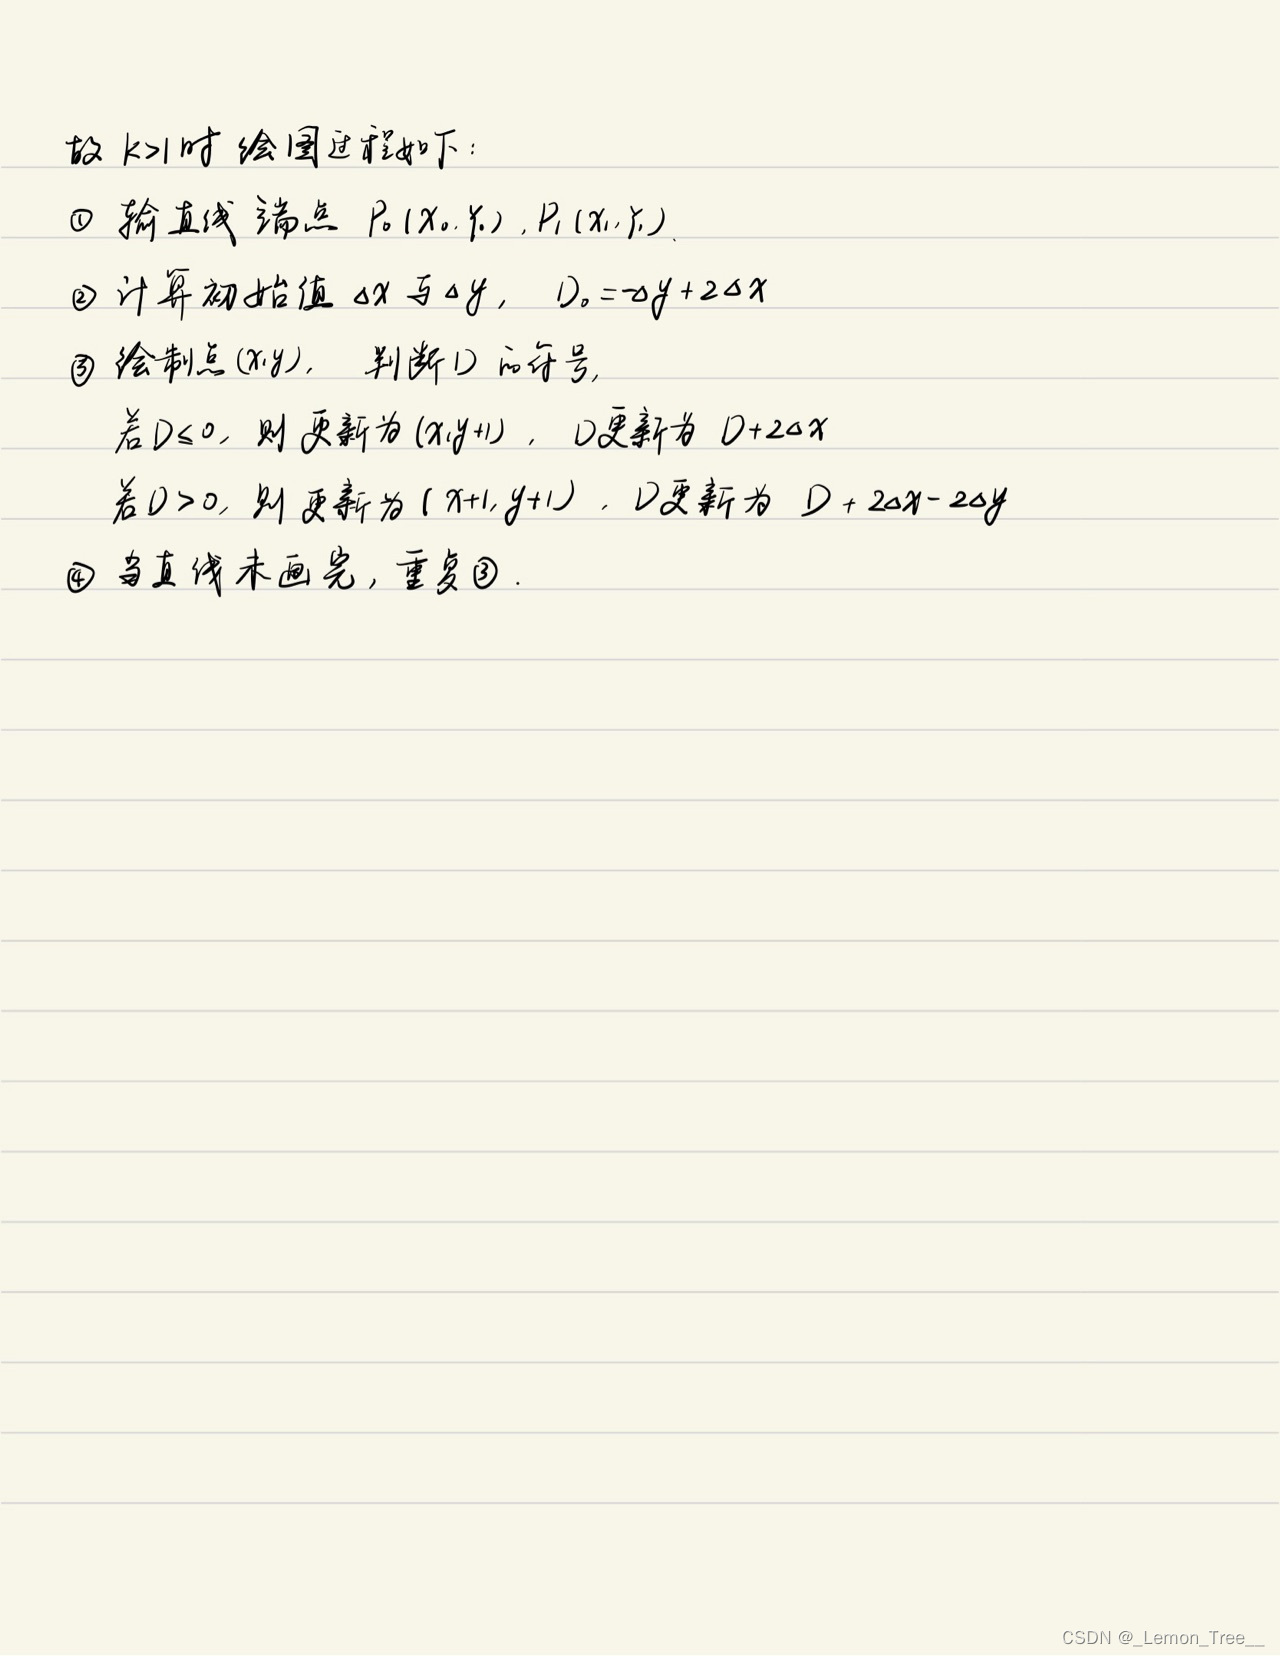 故 k>1时 绘图过程如下:
① 输直线 端点 P₀(x₀,y₀),P₁(x₁,y₁).
② 计算初始值 Δx 与 Δy, D₀=-Δy+2Δx
③ 绘制点(x,y), 判断D的符号,
若D≤0, 则更新为(x,y+1), D更新为 D+2Δx
若D>0, 则更新为(x+1,y+1), D更新为 D+2Δx-2Δy
④ 当直线未画完, 重复③.
CSDN @_Lemon_Tree__